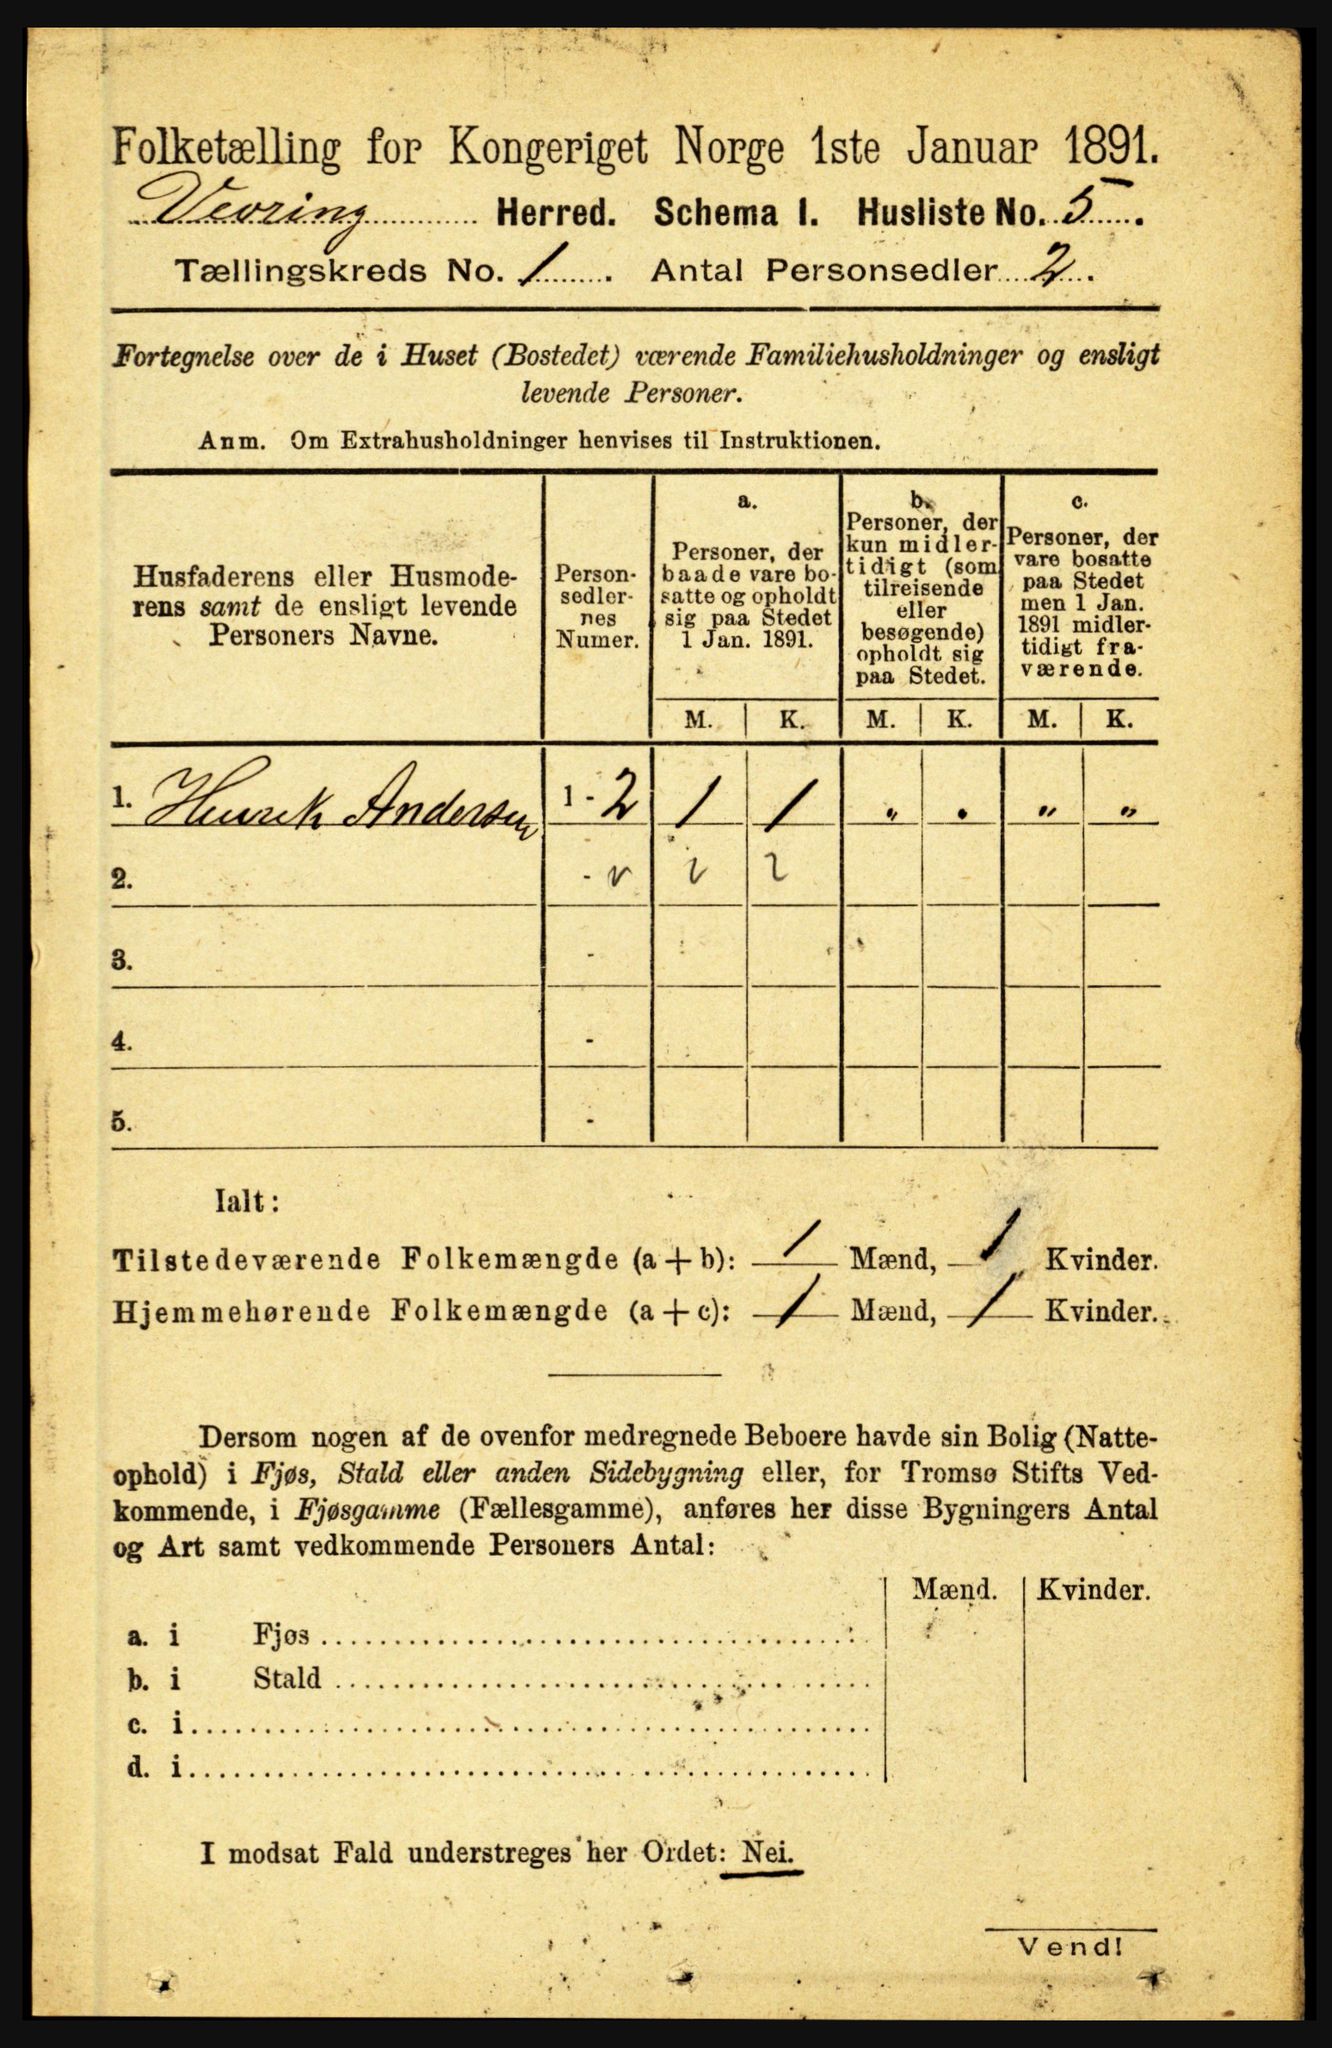 Folketælling for Kongeriget Norge 1ste Januar 1891.
Vevring Herred. Schema I. Husliste No. 5.
Tællingskreds No. 1. Antal Personsedler 2.
Fortegnelse over de i Huset (Bostedet) værende Familiehusholdninger og ensligt
levende Personer.
Anm. Om Extrahusholdninger henvises til Instruktionen.
Husfaderens eller Husmode-
rens samt de ensligt levende
Personers Navne.
Person-
sedler-
nes
Numer.
a.
Personer, der
baade vare bo-
satte og opholdt
sig paa Stedet
1 Jan. 1891.
b.
Personer, der
kun midler-
tidigt (som
tilreisende
eller
besøgende)
opholdt sig
paa Stedet.
c.
Personer, der
vare bosatte
paa Stedet
men 1 Jan.
1891 midler-
tidigt fra-
værende.
M. K. M. K. M. K.
1. Henrik Andersen 1 - 2 1 1 „ . „ „
2. - v v 2
3. -
4. -
5. -
Ialt:
Tilstedeværende Folkemængde (a + b): 1 Mænd, 1 Kvinder.
Hjemmehørende Folkemængde (a + c): 1 Mænd, 1 Kvinder.
Dersom nogen af de ovenfor medregnede Beboere havde sin Bolig (Natte-
ophold) i Fjøs, Stald eller anden Sidebygning eller, for Tromsø Stifts Ved-
kommende, i Fjøsgamme (Fællesgamme), anføres her disse Bygningers Antal
og Art samt vedkommende Personers Antal:
Mænd. Kvinder.
a. i Fjøs
b. i Stald
c. i
d. i
I modsat Fald understreges her Ordet: Nei.
Vend!